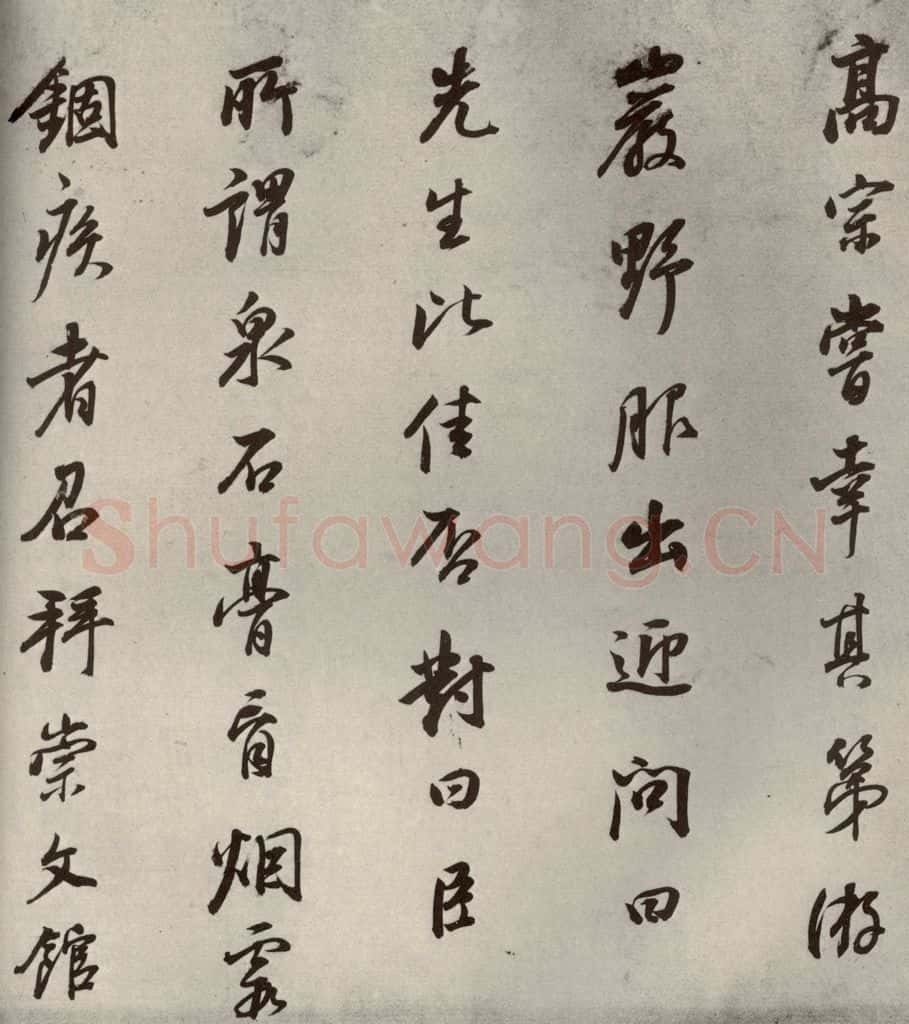 高宗嘗幸其第游
巖野服出迎問曰
先生比佳否對曰臣
所謂泉石膏肓烟霞
錮疾者召拜崇文館
Shufawang.CN